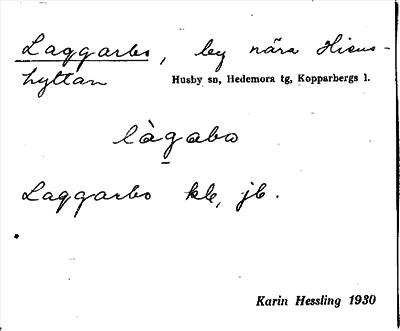 Laggarbo, by nära Hisus-
hyttan Husby sn, Hedemora tg, Kopparbergs l.
làgabω
Laggarbo kk, jb.
Karin Hessling 1930